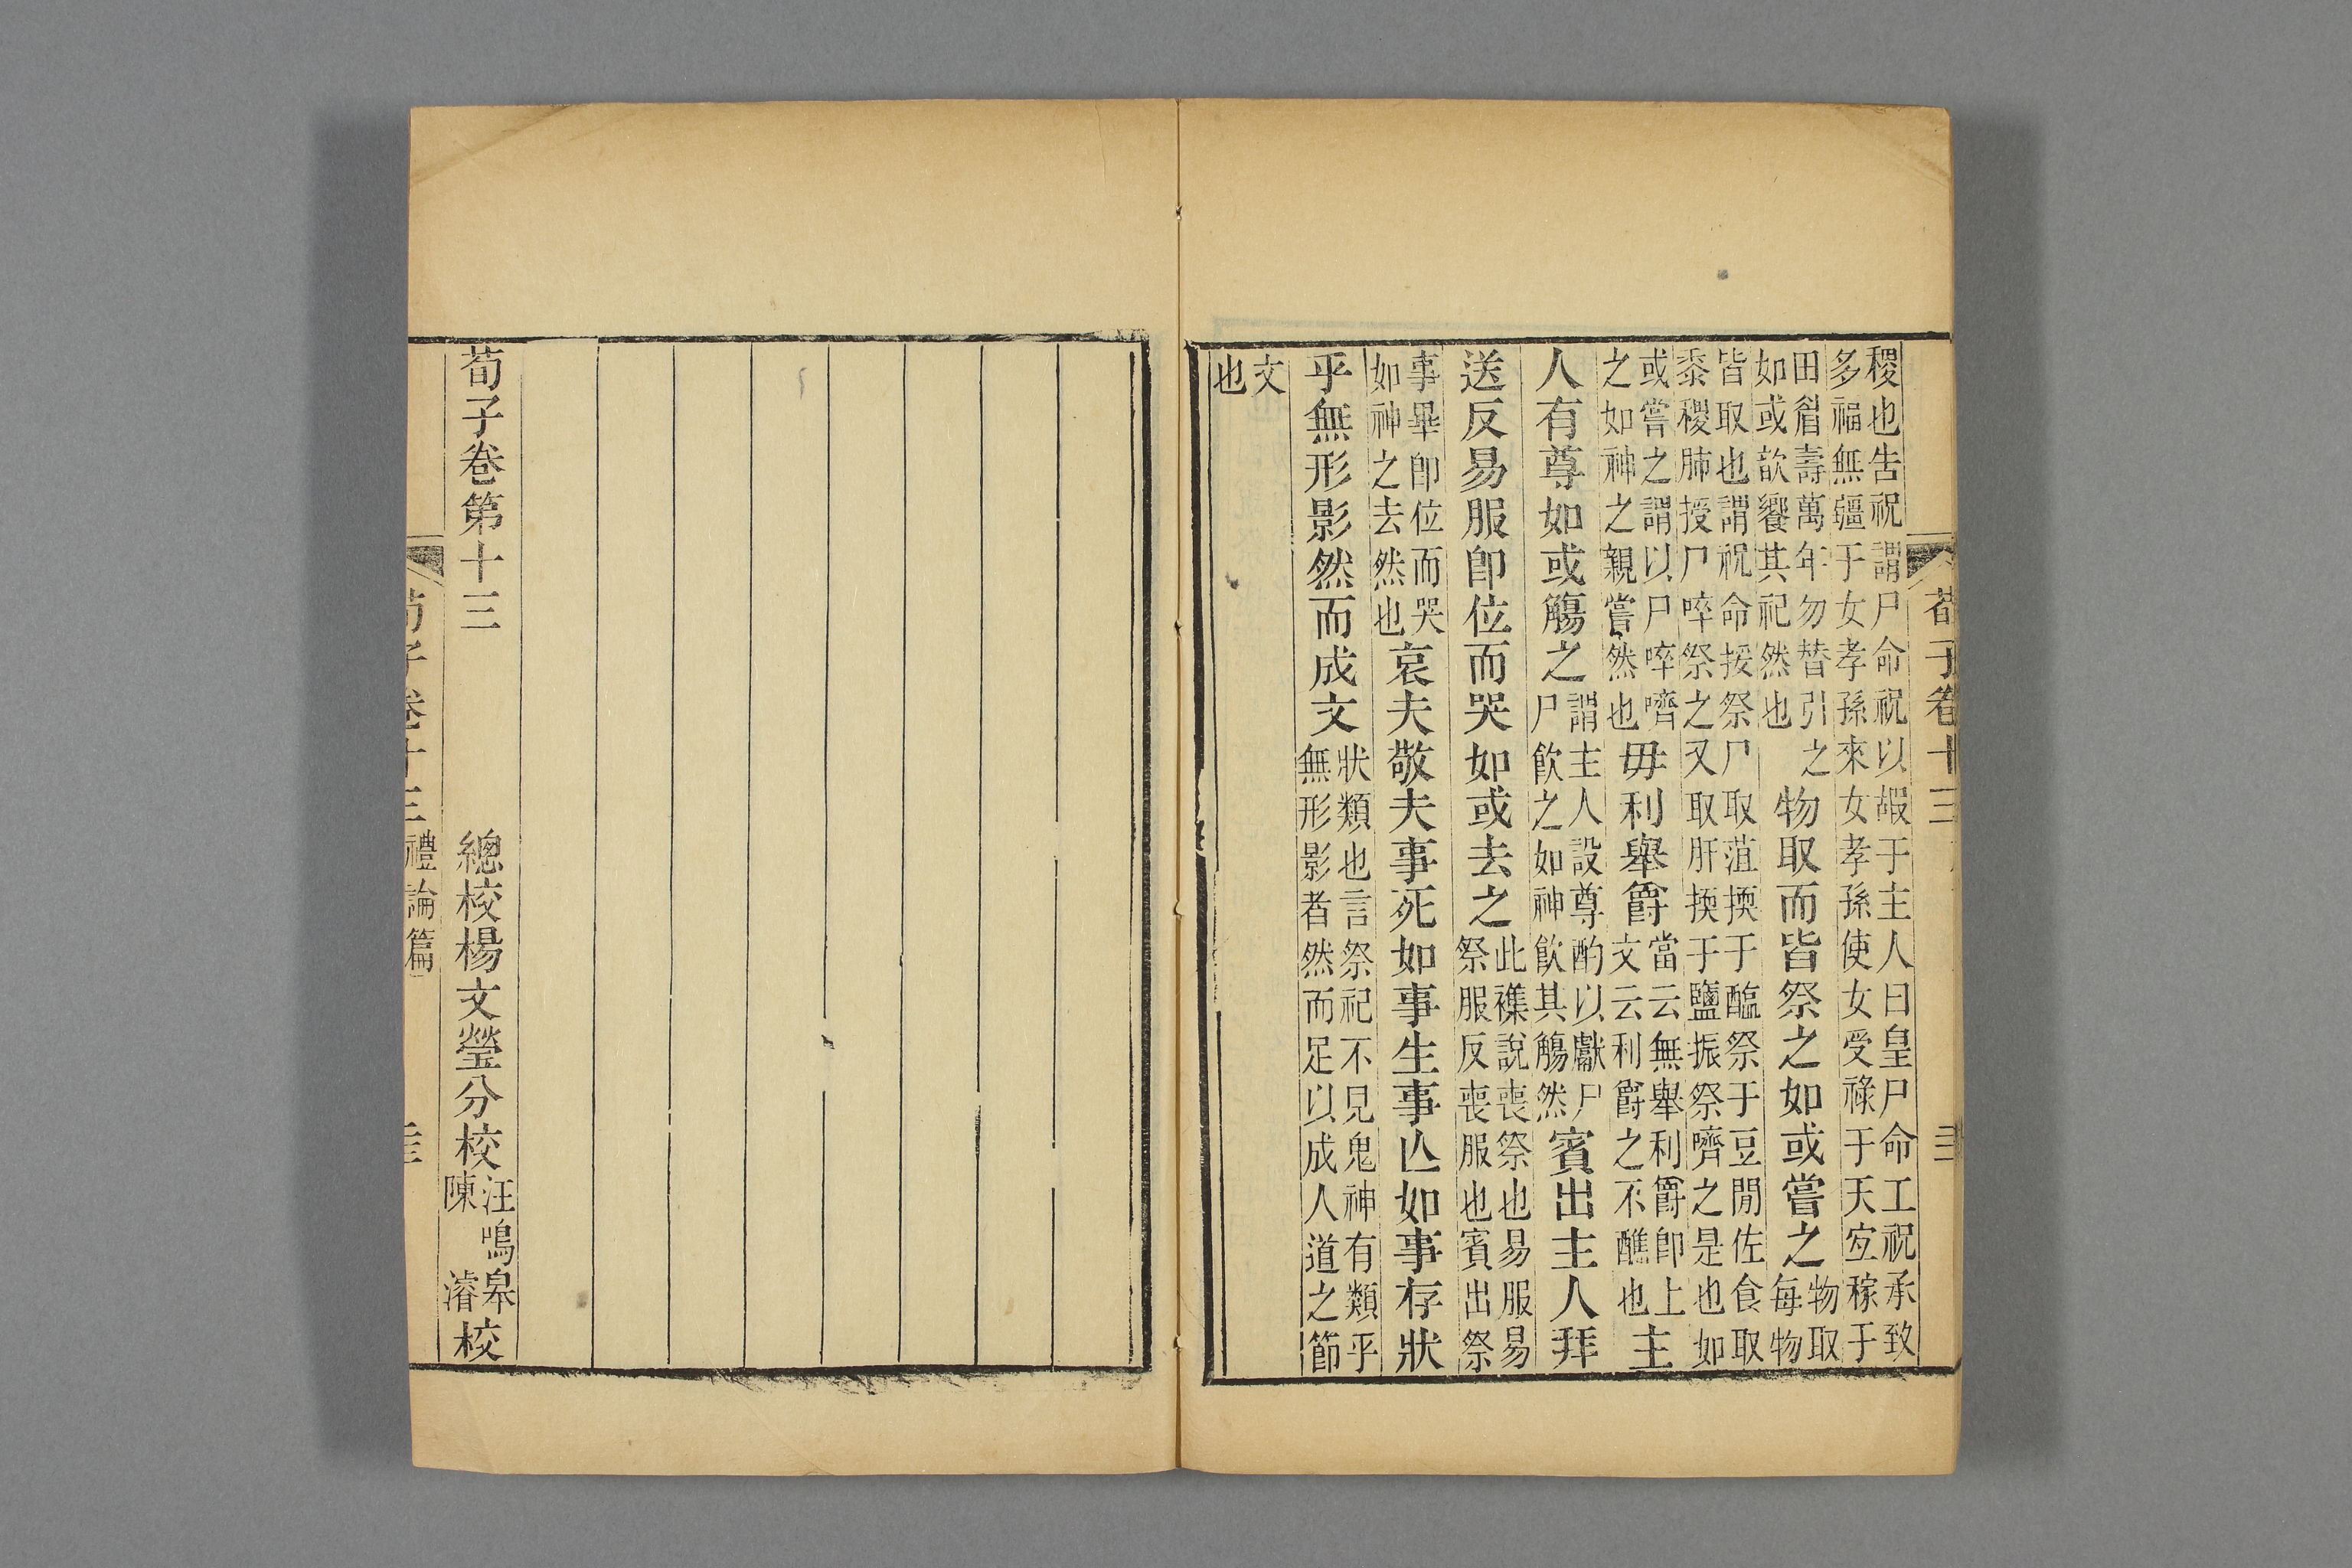 荀子卷十三
稷也告祝謂尸命祝以嘏于主人曰皇尸命工祝承致
多福無疆于女孝孫來女孝孫使女受祿于天宜稼于
田眉壽萬年勿替引之
如或歆饗其祀然也
物取而皆祭之如或嘗之
物取
每物
皆取也謂祝命挼祭尸取菹擩于醢祭于豆閒佐食取
黍稷肺授尸啐祭之又取肝擩于鹽振祭嚌之是也如
或嘗之謂以尸啐嚌
之如神之親嘗然也
毋利舉爵
當云無舉利爵卽上
文云利爵之不醮也
主
人有尊如或觴之
謂主人設尊酌以獻尸
尸飮之如神飮其觴然
賓出主人拜
送反易服卽位而哭如或去之
此襍說喪祭也易服易
祭服反喪服也賓出祭
事畢卽位而哭
如神之去然也
哀夫敬夫事死如事生事亾如事存狀
乎無形影然而成文
狀類也言祭祀不見鬼神有類乎
無形影者然而足以成人道之節
文
也
荀子卷第十三
總校楊文瑩分校
汪鳴皋
陳濬
校
荀子卷十三
禮論篇